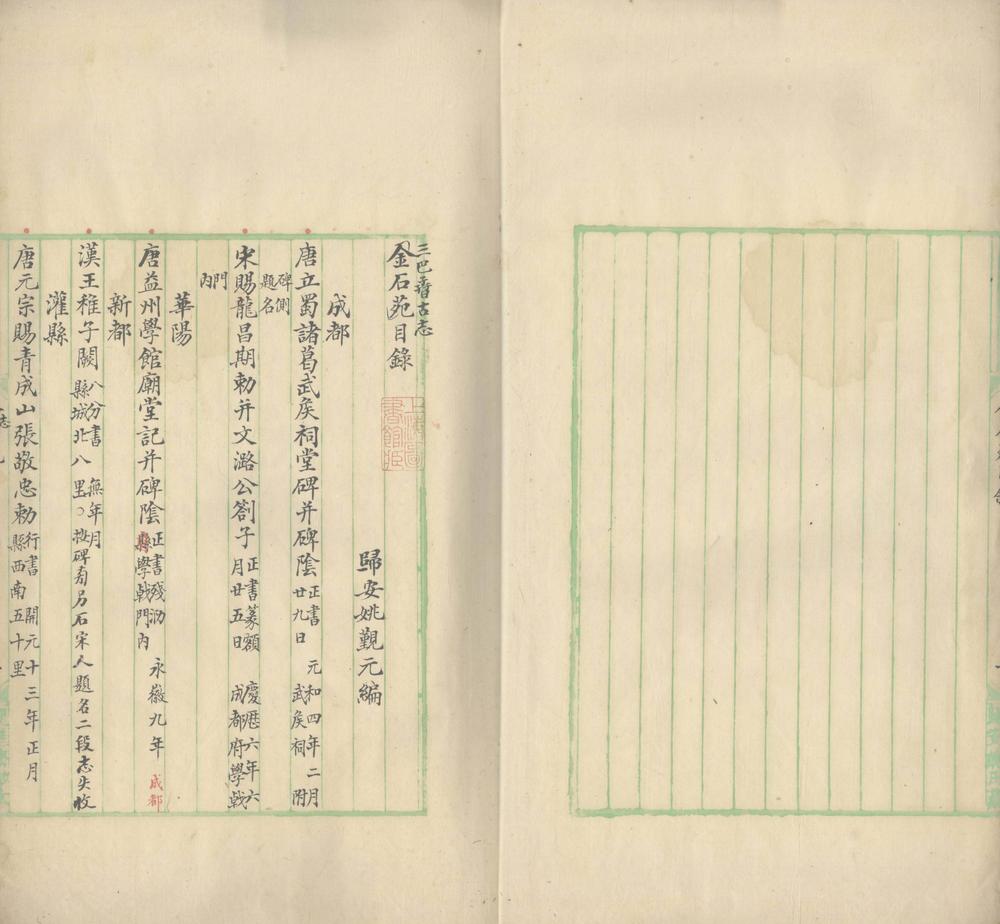 三巴𦒱古志
金石苑目錄
歸安姚覲元編
成都
唐立蜀諸葛武矦祠堂碑并碑陰 正書 元和四年二月廿九日 武矦祠 附
碑側題名
宋賜龍昌期勅并文潞公劄子 正書篆額 慶歷六年六月廿五日 成都府學戟
門內
華陽
唐益州學館廟堂記并碑陰 正書殘泐 永徽九年 縣學戟門內 成都
新都
漢王稚子闕 八分書 無年月 縣城北八里○按碑有另石宋人題名二段志失收
灌縣
唐元宗賜青成山張敬忠勅 行書 開元十三年正月 縣西南五十里